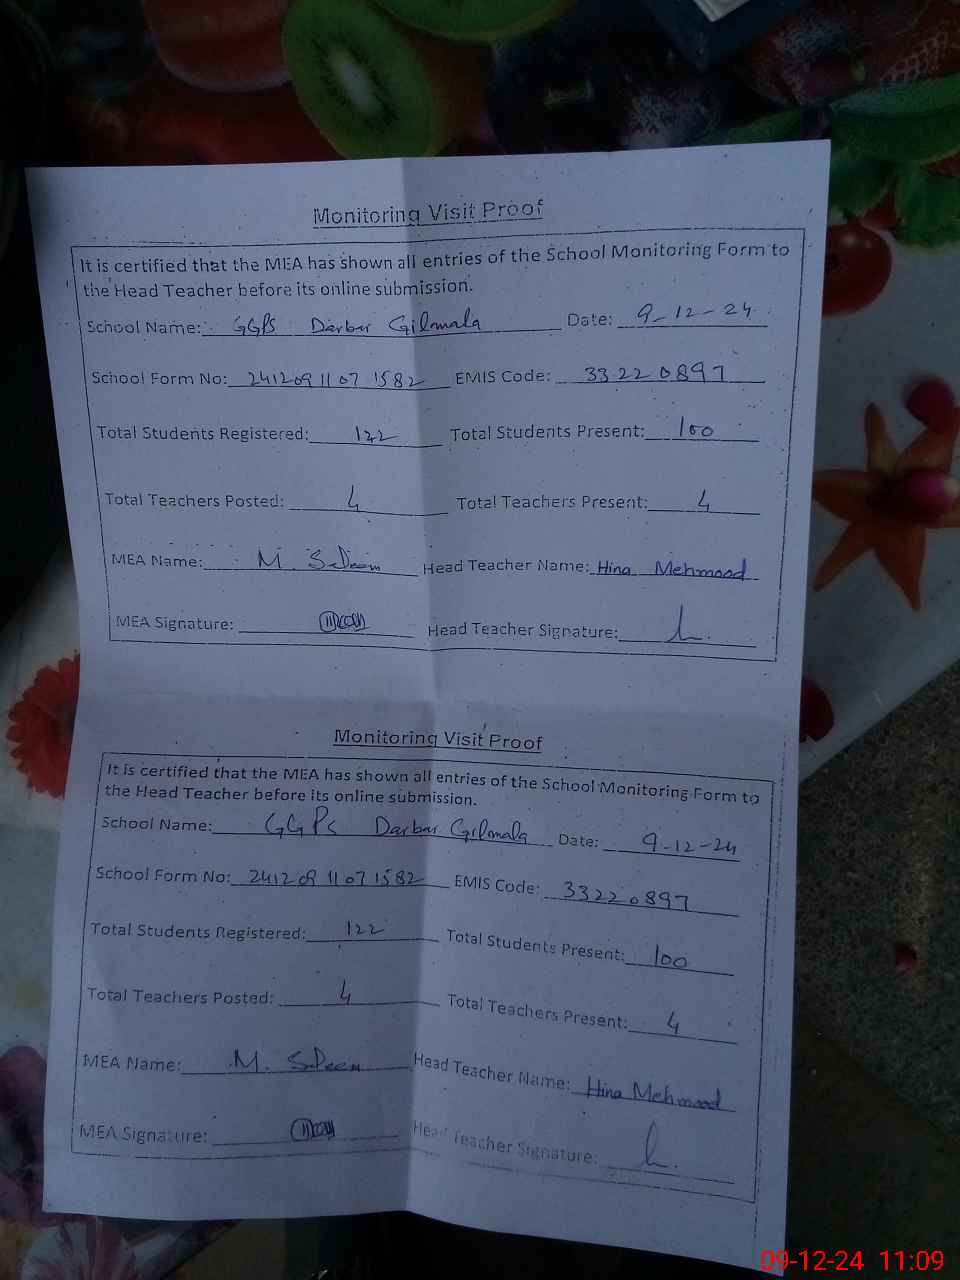 Monitoring Visit Proof
It is certified that the MEA has shown all entries of the School Monitoring Form to
the Head Teacher before its online submission.
School Name: GGPS Darbar Gilmala Date: 9-12-24
School Form No: 241209 1107 1582 EMIS Code: 33220897
Total Students Registered: 122 Total Students Present: 100
Total Teachers Posted: 4 Total Teachers Present: 4
MEA Name: M. Head Teacher Name: Hina Mehmood
MEA Signature: Head Teacher Signature:
Monitoring Visit Proof
It is certified that the MEA has shown all entries of the School Monitoring Form to
the Head Teacher before its online submission.
School Name: GGPS Darbar Gilmala Date: 9-12-24
School Form No: 241209 1107 1582 EMIS Code: 33220897
Total Students Registered: 122 Total Students Present: 100
Total Teachers Posted: 4 Total Teachers Present: 4
MEA Name: M. Head Teacher Name: Hina Mehmood
MEA Signature: Head Teacher Signature:
09-12-24 11:09